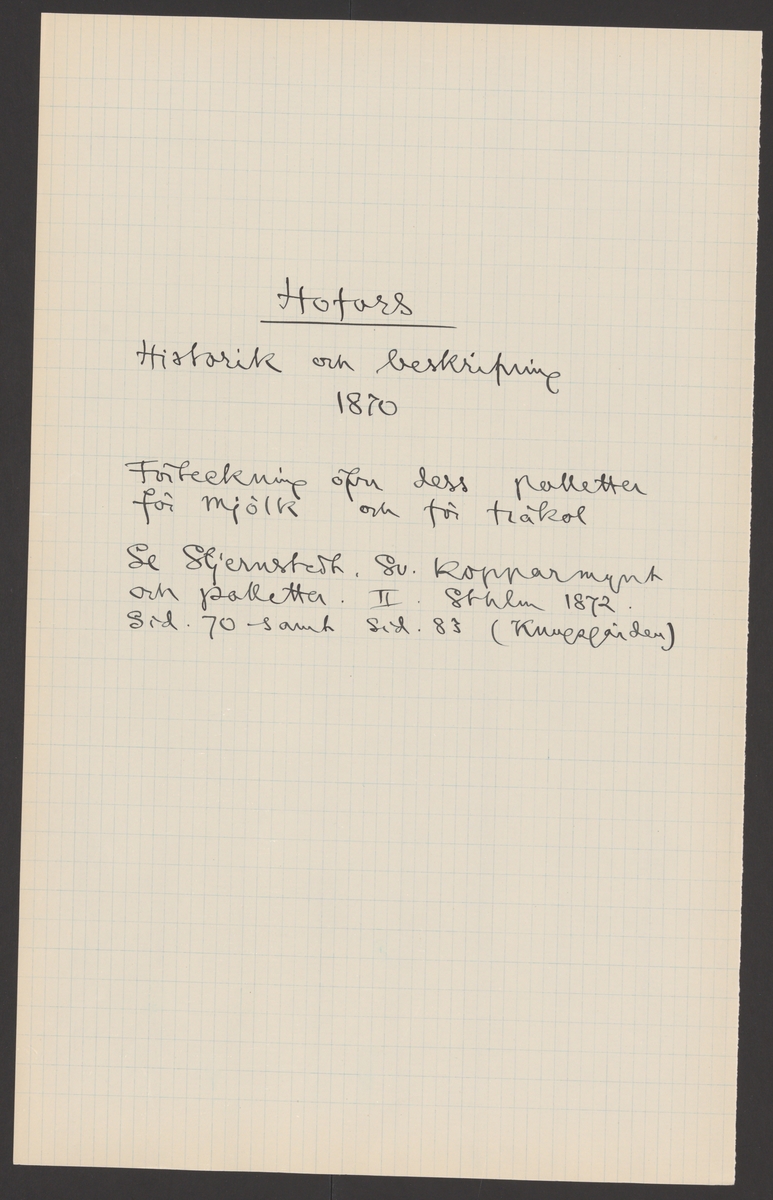 Hofors
Historik och beskrifning
1870
Förteckning öfver dess polletter
för mjölk och för träkol
Se Stjernstedt. Sv. Kopparmynt
och polletter. II. Sthlm 1872.
Sid. 70 samt Sid. 83 (Kungsgården)